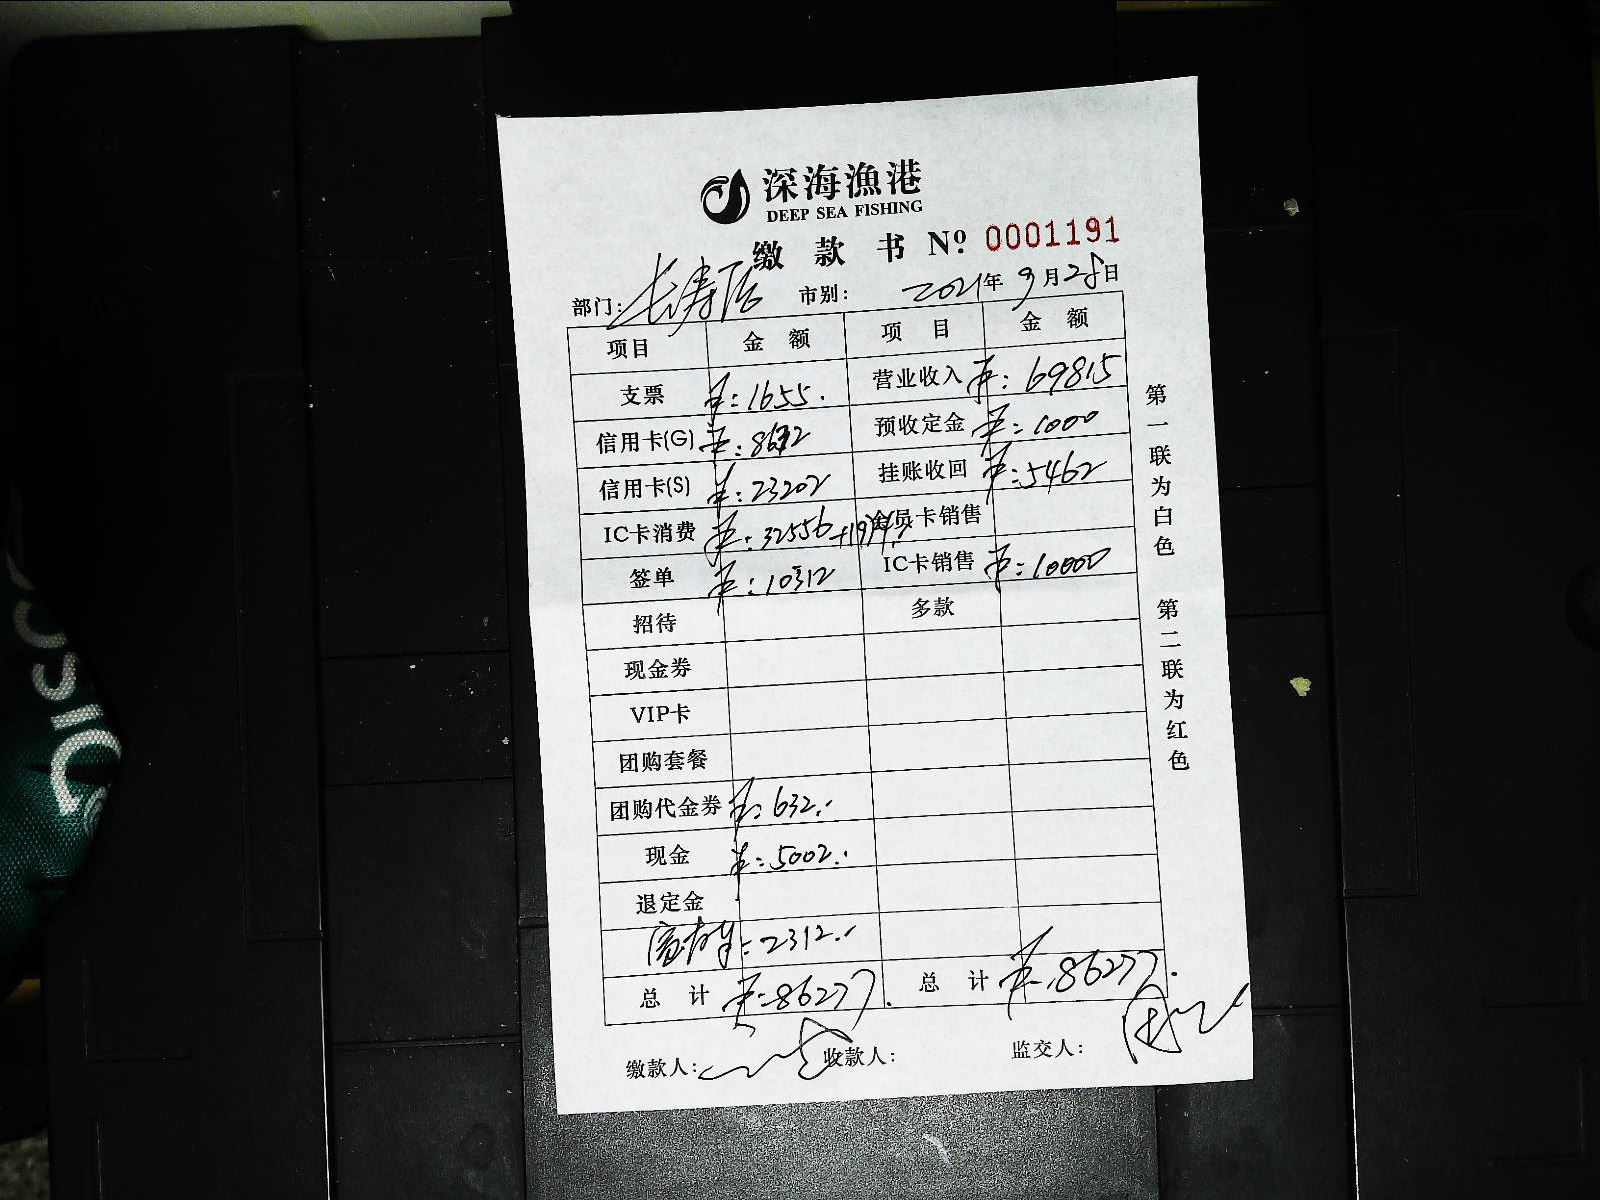 深海漁港
DEEP SEA FISHING
缴 款 书 Nº. 0001191
部门: 长寿店 市别: 2021年 9月28日
项目 金 额 项 目 金 额
支票 ¥:1655. 营业收入 ¥: 69815
信用卡(G) ¥: 预收定金 ¥:1000
信用卡(S) ¥:23202 挂账收回 ¥:5462
IC卡消费 ¥:32556 会员卡销售
签单 ¥:10312 IC卡销售 ¥:10000
招待 多款
现金券
VIP卡
团购套餐
团购代金券 ¥:632.
现金 ¥:5002.
退定金
:2312.
总 计 ¥:86277. 总 计 ¥:86277.
缴款人: 收款人: 监交人:
第一联为白色 第二联为红色